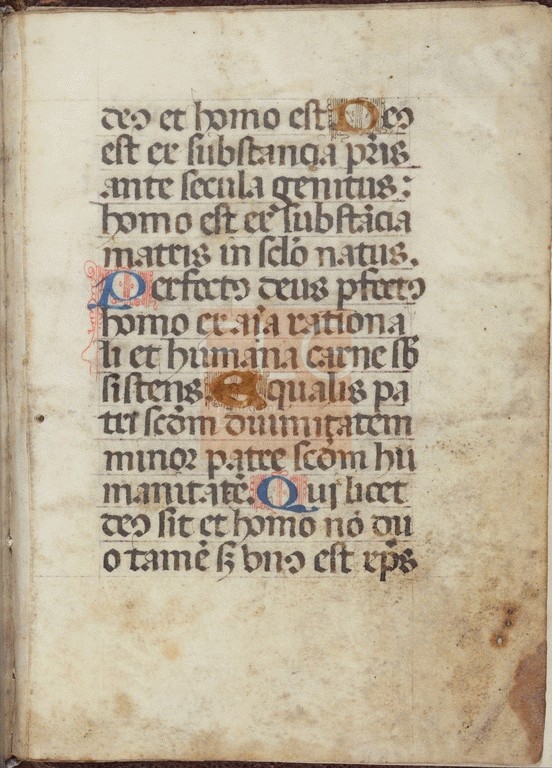 deꝰ et homo est Deꝰ
est ex substancia pr̃is
ante secula genitus:
homo est ex substãcia
matris in sclo natus.
Perfectꝰ deus pfectꝰ
homo ex aĩa rationa
li et humana carne sb
sistens. Equalis pa
tri scđm diuinitatem
minor patre scđm hu
manitatẽ. Qui licet
deꝰ sit et homo nõ du
o tamẽ sꝫ vnꝰ est xp̃s